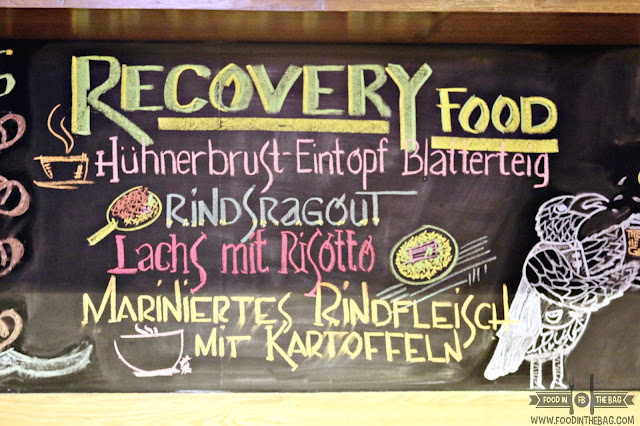 RECOVERY FOOD
Hühnerbrust-Eintopf Blätterteig
RINDSRAGOUT
LACHS mit RISOTTO
MARINIERTES RINDFLEISCH
MIT KARTOFFELN
FOOD IN FB THE BAG
WWW.FOODINTHEBAG.COM